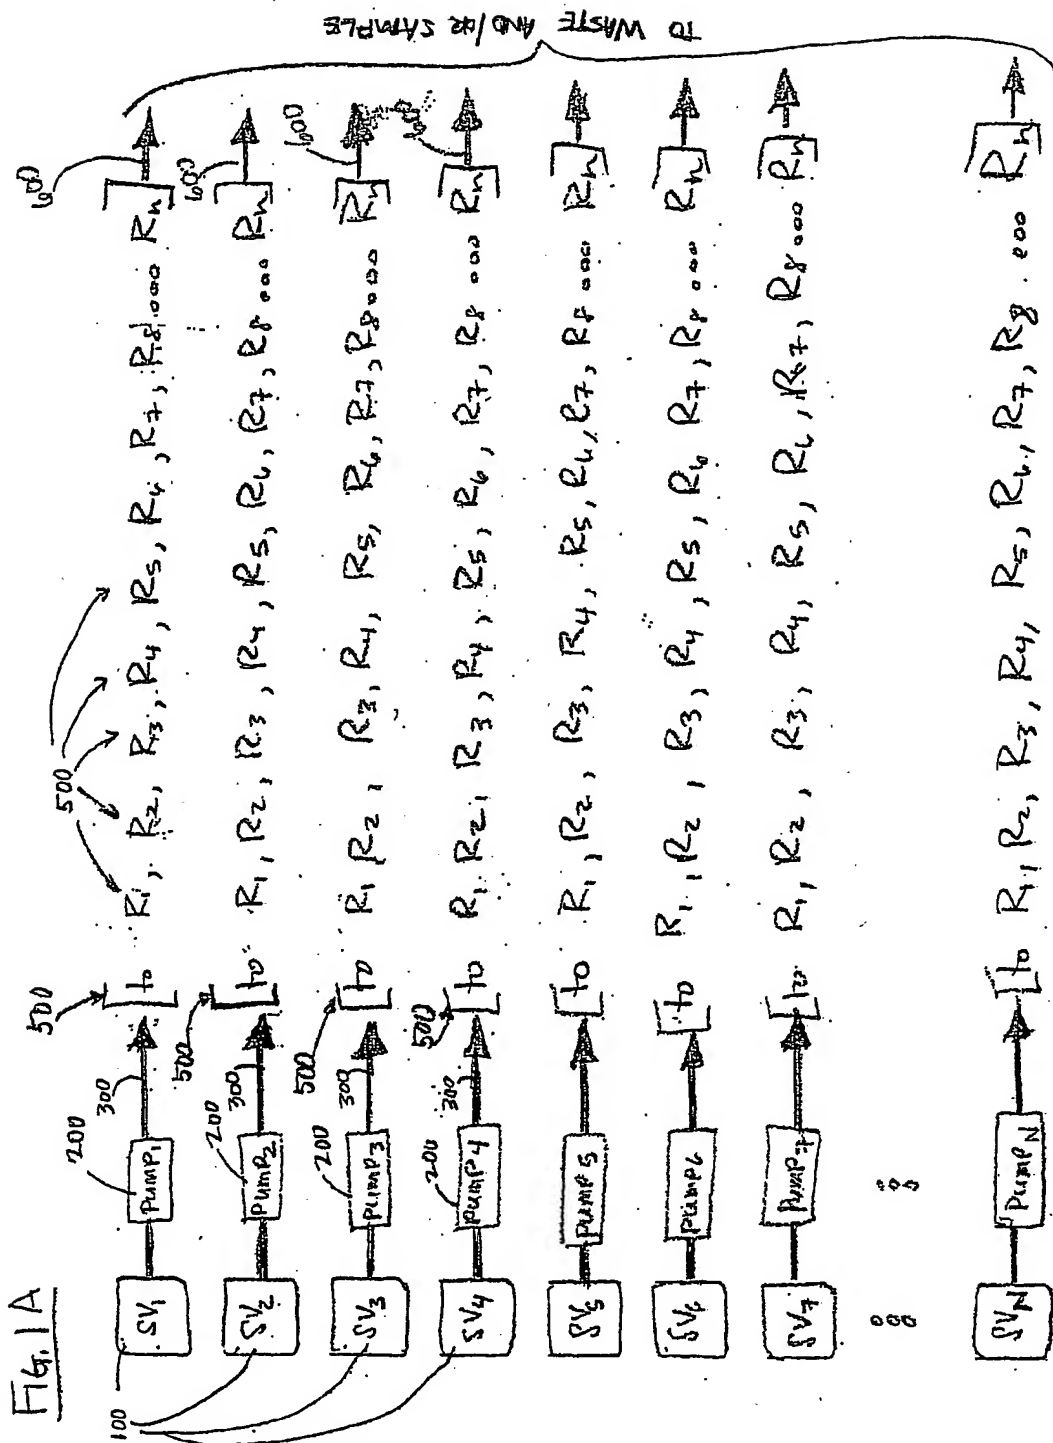 FIG. 1A
100
SV1 200 pump1 300 500 [to] R1, R2, R3, R4, R5, R6, R7, R8 ooo [Rn] 600
500
SV2 200 pump2 300 500 [to] R1, R2, R3, R4, R5, R6, R7, R8 ooo [Rn] 600
SV3 200 pump3 300 500 [to] R1 R2, R3, R4, R5, R6, R7, R8 ooo [Rn] 600
SV4 200 pump4 300 500 [to] R1, R2, R3, R4, R5, R6, R7, R8 ooo [Rn] 600
SV5 pump5 [to] R1, R2, R3, R4, R5, R6, R7, R8 ooo [Rn]
SV6 pump6 [to] R1, R2, R3, R4, R5, R6 R7, R8 ooo [Rn]
SV7 pump7 [to] R1, R2, R3, R4, R5, R6, R7, R8 ooo [Rn]
ooo ooo
SVN pumpN [to] R1, R2, R3, R4, R5, R6, R7, R8 ooo [Rn]
TO WASTE AND/OR SAMPLE